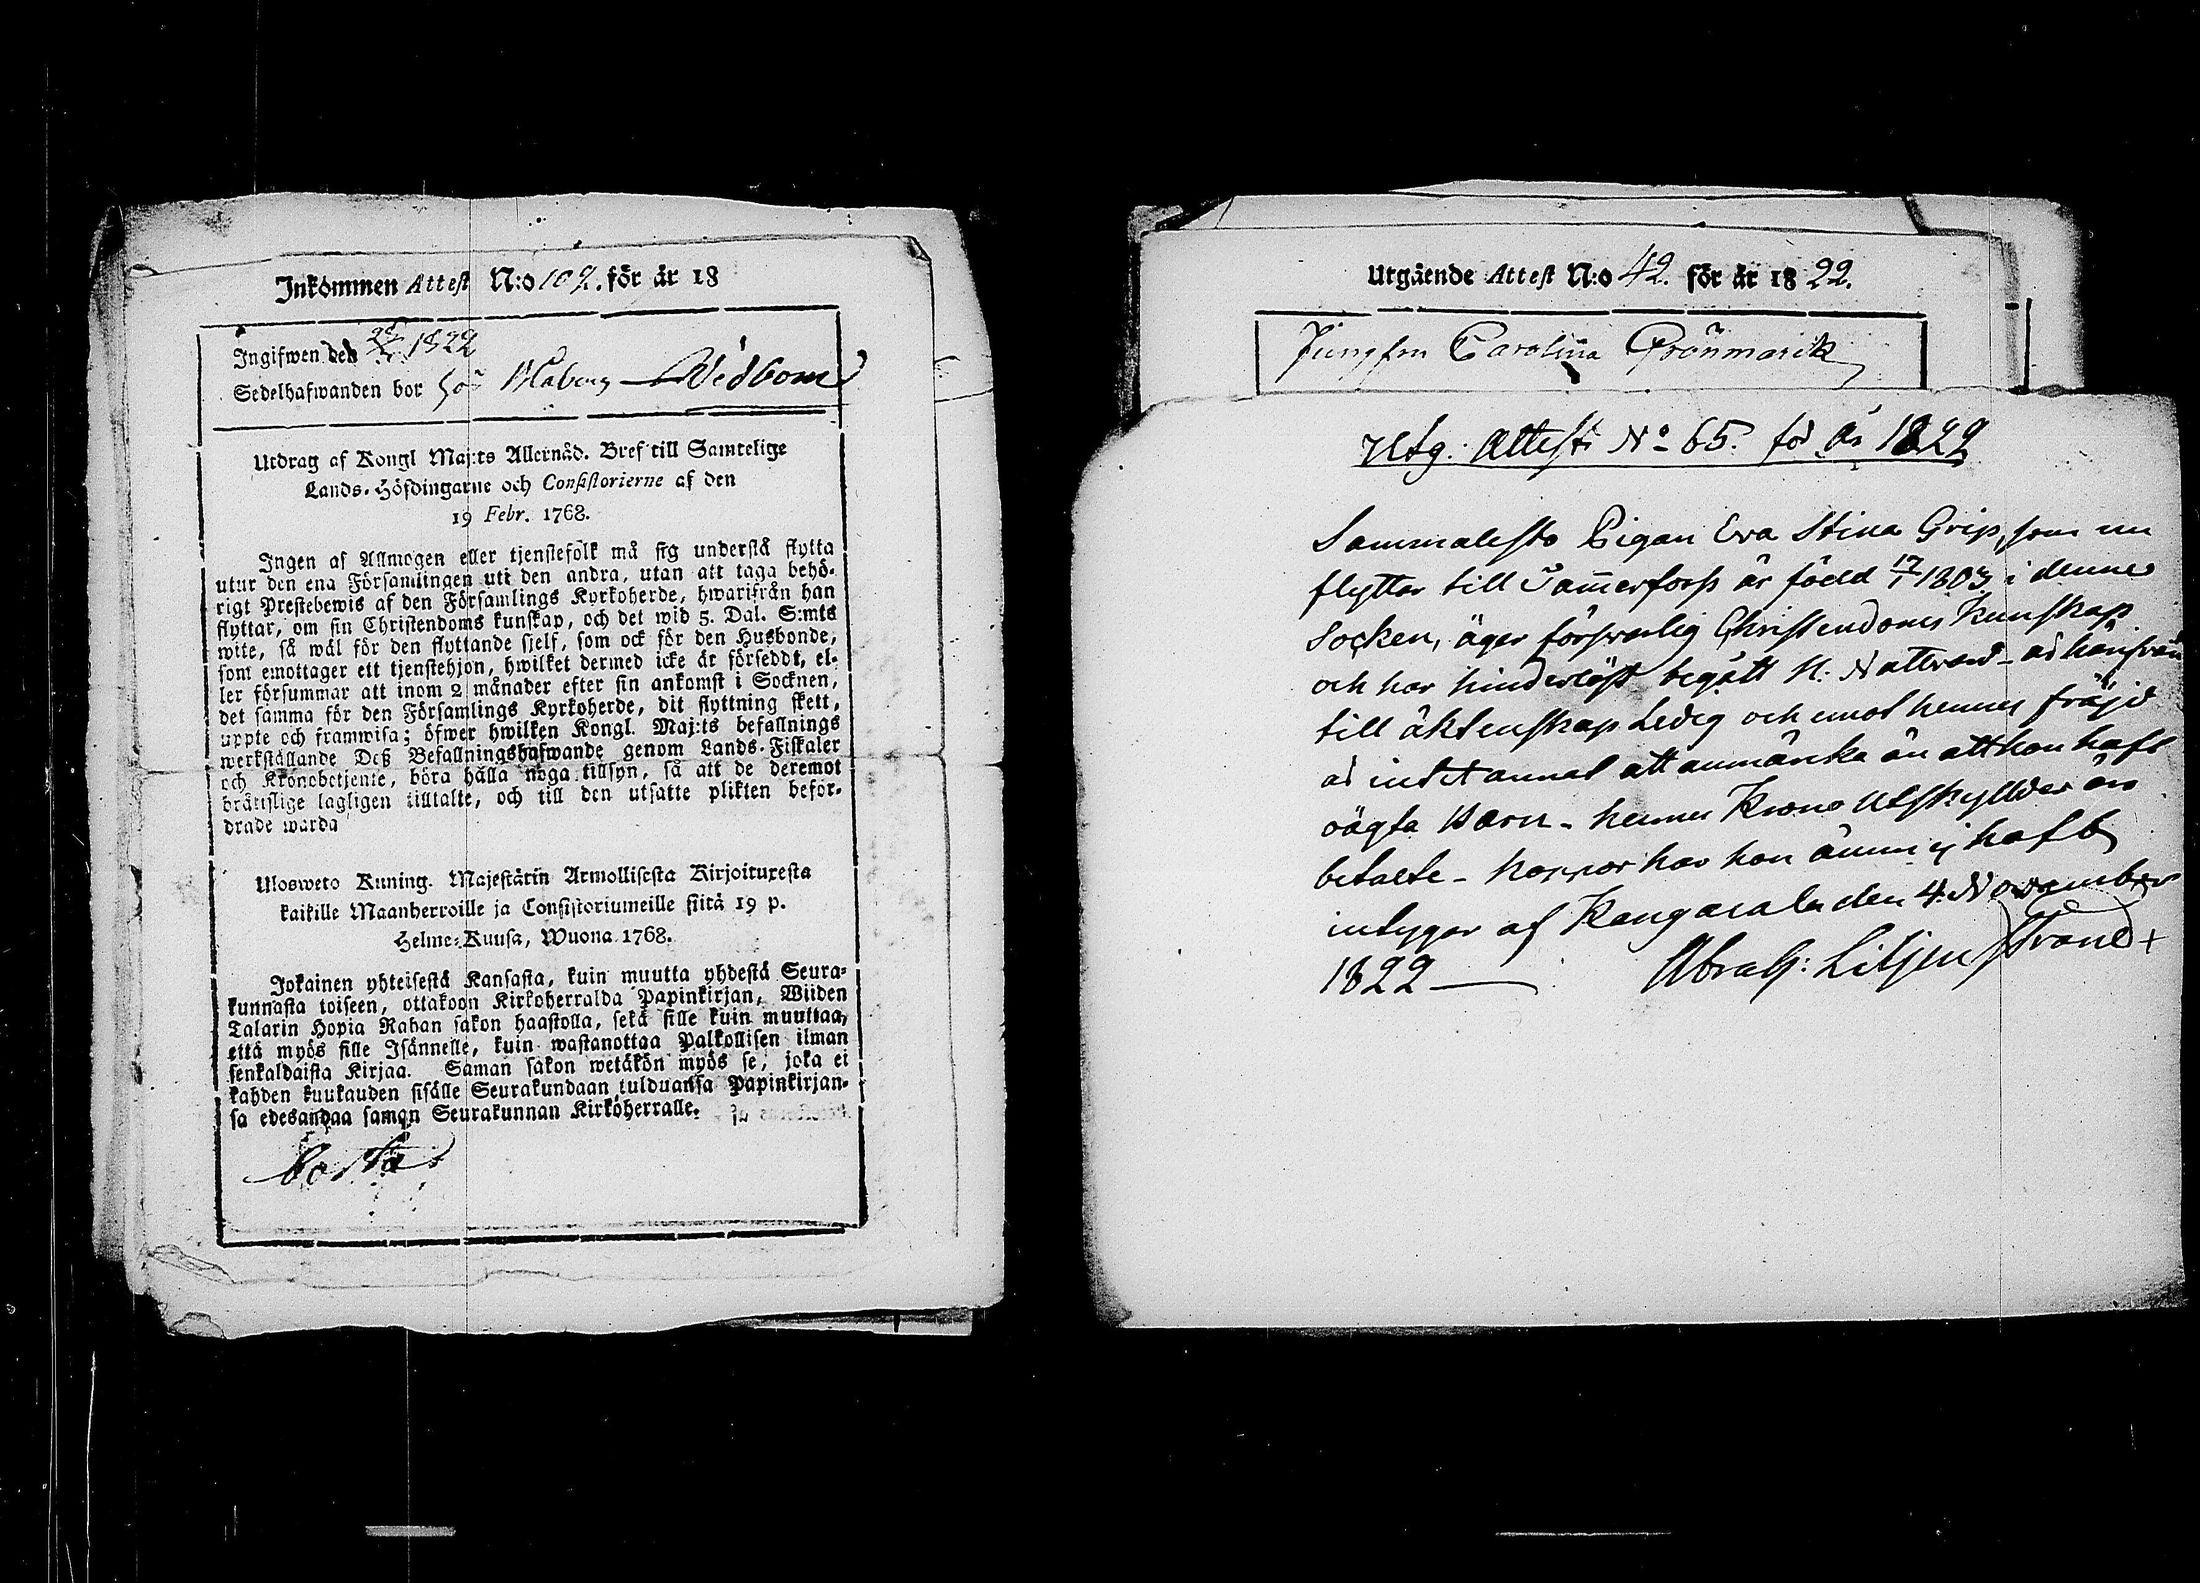 Inkommen Attest N:o 102. för år 18
Ingifwen den 1822
Sedelhafwanden bor hos Wedbom
Utdrag af Kongl Maj:ts Allernåd. Bref till Samtelige
Lands-Höfdingarne och Consistorierne af den
19 Febr. 1768.
Ingen af Allmogen eller tjenstefolk må sig understå flytta
utur den ena Församlingen uti den andra, utan att taga behö-
rigt Prestebewis af den Församlings Kyrkoherde, hwarifrån han
flyttar, om sin Christendoms kunskap, och det wid 5. Dal. S:mts
wite, så wäl för den flyttande sjelf, som ock för den Husbonde,
som emottager ett tjenstehjon, hwilket dermed icke är försedt, el-
ler försummar att inom 2 månader efter sin ankomst i Socknen,
det samma för den Församlings Kyrkoherde, dit flyttning skett,
uppte och framwisa; öfwer hwilken Kongl. Maj:ts befallnings
werkställande Deß Befallningshafwande genom Lands-Fiskaler
och Kronobetjente, böra hålla noga tillsyn, så att de deremot
bråttslige lagligen tilltalte, och till den utsatte plikten befor-
drade warda
Ulosweto Kuning. Majestätin Armollisesta Kirjoituxesta
kaikille Maanherroille ja Consistoriumeille siitä 19 p.
Helme-Kuusa, Wuona 1768.
Jokainen yhteisestä Kansasta, kuin muutta yhdestä Seura-
kunnasta toiseen, ottakoon Kirkoherralda Papinkirjan, Wiiden
Talarin Hopia Rahan sakon haastolla, sekä sille kuin muuttaa,
että myös sille Isännelle, kuin wastanottaa Palkollisen ilman
senkaldaista Kirjaa. Saman sakon wetäkön myös se, joka ei
kahden kuukauden sisälle Seurakundaan tulduansa Papinkirjan-
sa edesandaa saman Seurakunnan Kirkoherralle.
Utgående Attest N:o 42. för år 1822.
Jungfru Carolina Grönmarck
Utg. Attest No 65. för År 1822
Sammalesto Pigan Eva Stina Grip, som nu
flyttar till Tammerforss är född 17/1 1803 i denne
Socken, äger försvarlig Christendoms Kunskap
och har hinderlöst begått H. Nattvard - är härifrån
till äktenskap Ledig och emot hennes fräjd
är intet annat att anmärka än att hon haft
oägta Barn - hennes Krono Utskyllder äro
betalte - koppor har hon ännu ej haft
intygar af Kangasala den 4. November
1822 — Abrah: Liljenstrand